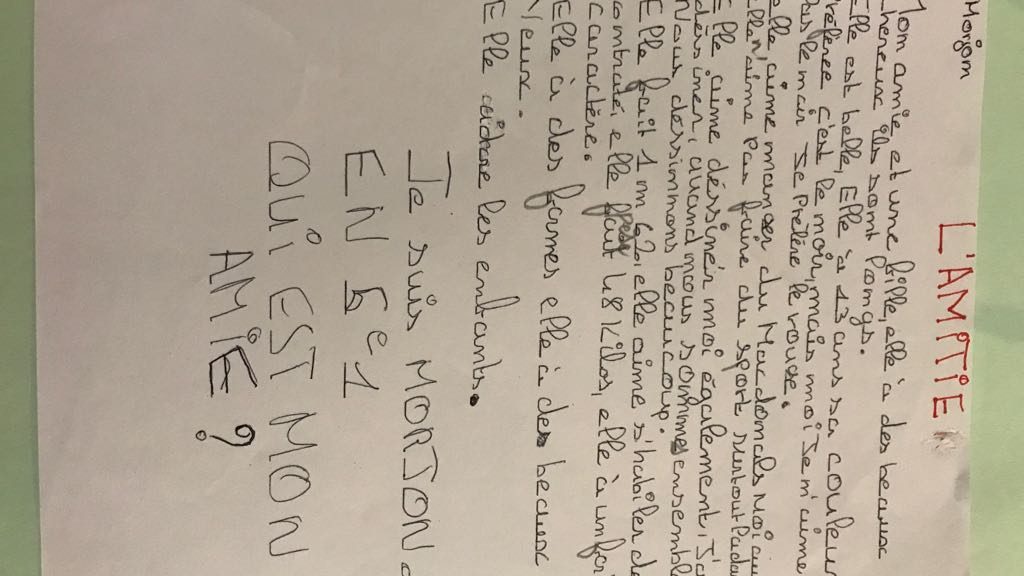 Morjom
L'AMITIE
Mom amie et une fille, elle à des beaux
cheveux ils sont longs.
Elle est belle, Elle à 13 ans sa couleur
Préférée c'est le noir, mais moi Je n'aime
Pas le noir Je Préfère le rouge.
elle aime manger du Macdonals Moi au
elle n'aime pas faire du sport surtout
Elle aime déssiner moi également, J'a
déssiner, quand nous sommes ensembl
Nous dessinons beaucoup.
Elle fait 1 m 62, elle aime s'habiler de
elle fait 48 Kilos, elle à un for
caractère.
Elle à des formes elle à des beaux
Yeux.
Elle adore les enfants.
Je suis MORJON
EN 5e1
QUi EST MON
AMiE ?